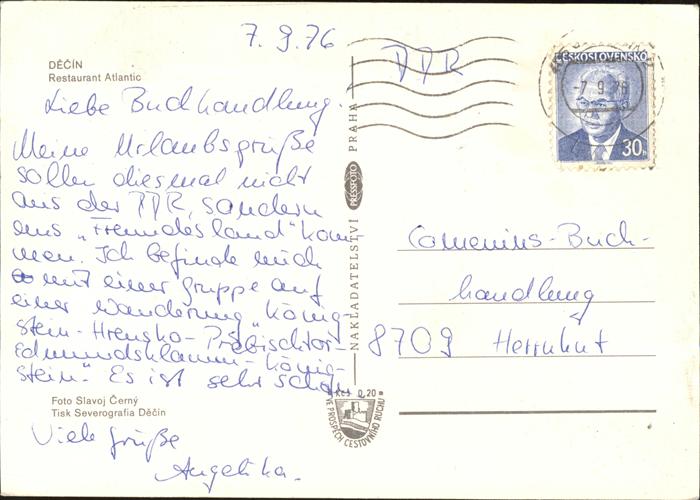 7. 9. 76
DĚČÍN
Restaurant Atlantic
Liebe Buchhandlung.
Meine Urlaubsgrüße
sollen diesmal nicht
aus der DDR, sondern
aus „Freundesland" kom-
men. Ich befinde mich
mit einer Gruppe auf
einer Wanderung „König-
stein-Hrensko-Prebischtor-
Edmundsklamm-König-
stein." Es ist sehr schön
Foto Slavoj Černý
Tisk Severografia Děčín
Viele Grüße
Angelika.
NAKLADATELSTVÍ PRESSFOTO PRAHA
Kčs 0,20
VE PROSPĚCH CESTOVNÍHO RUCHU
DDR
ČESKOSLOVENSKO
-7. 9. 76
30h
Comenius-Buch-
handlung
8709 Herrnhut